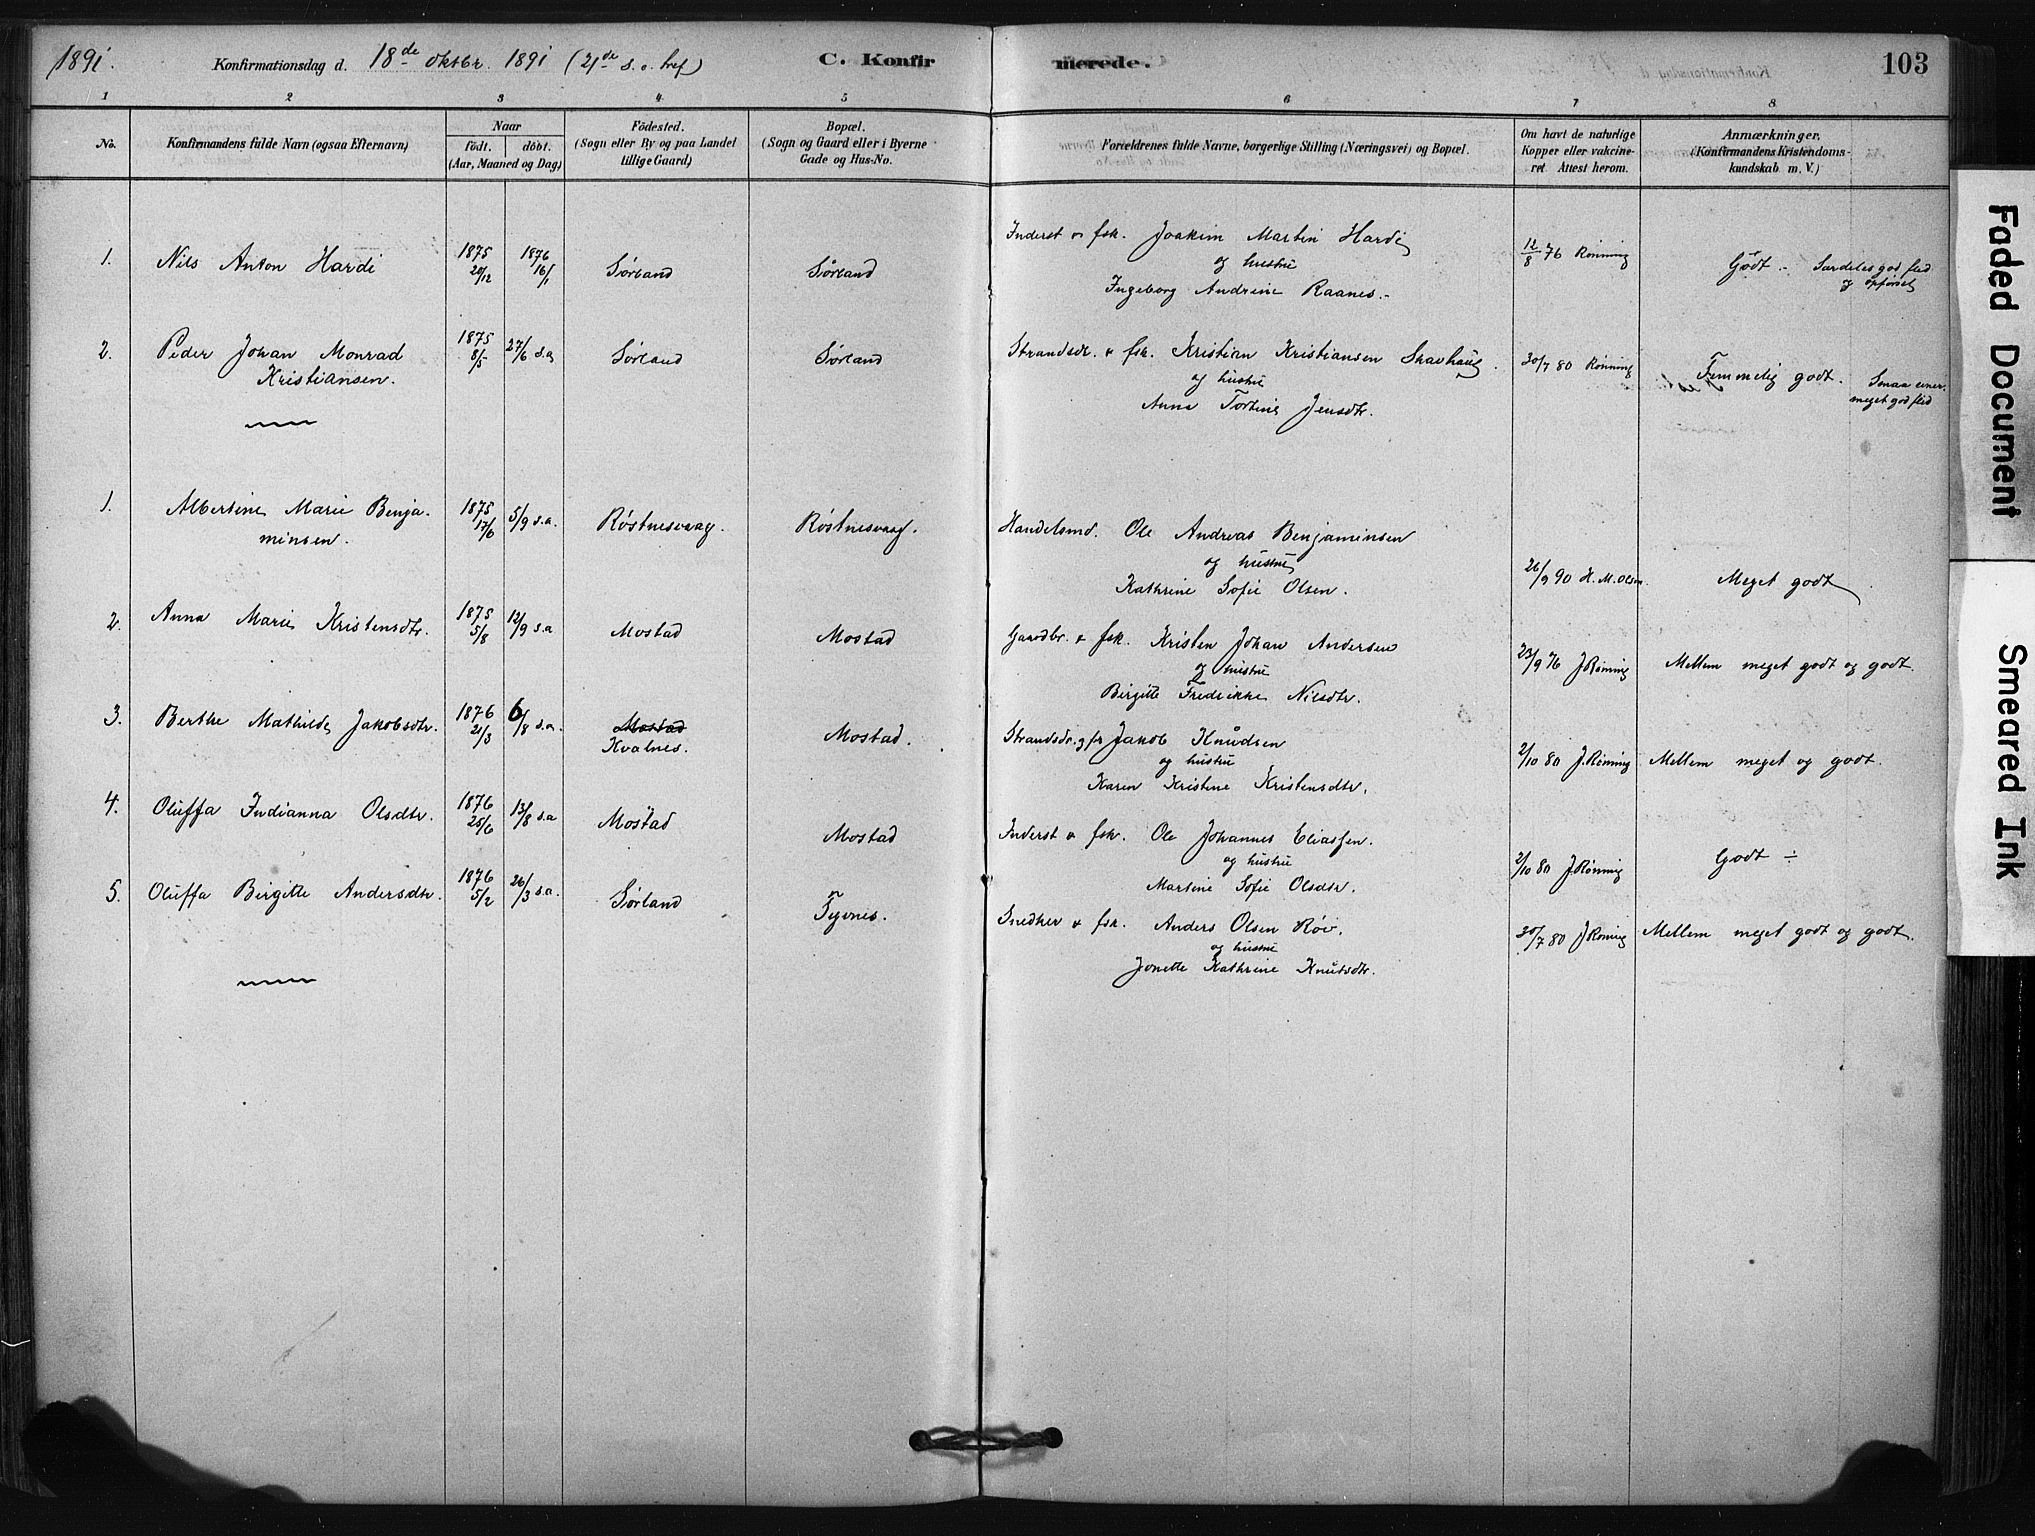 1891.
Konfirmationsdag d. 18de oktbr. 1891 (21de s. e. tref)
C. Konfirmerede.
103
1 2 3 4 5 6 7 8
No.
Konfirmandens fulde Navn (ogsaa Efternavn)
Naar
födt. döbt.
(Aar, Maaned og Dag)
Födested.
(Sogn eller By og paa Landet
tillige Gaard)
Bopæl.
(Sogn og Gaard eller i Byerne
Gade og Hus-No.
Forældrenes fulde Navne, borgerlige Stilling (Næringsvei) og Bopæl.
Om havt de naturlige
Kopper eller vakcine-
ret Attest herom.
Anmærkninger.
(Konfirmandens Kristendoms-
kundskab m. V.)
1. Nils Anton Hardi 1875 20/12 1876 16/1 Sørland Sørland
Inderst & fsk. Joakim Martin Hardi
og hustru
Ingeborg Andrine Raanes.
12/8 76 Rønning
Godt. Særdeles god flid
og opførsel
2. Peder Johan Monrad
Kristiansen.
1875 8/5 27/6 s.a. Sørland Sørland
Strandsdr. & fsk. Kristian Kristiansen Skavhaug.
og hustru
Anna Tortine Jensdtr.
30/7 80 Rønning
Temmelig godt. Smaa evner
meget god flid
1. Albertine Marie Benja-
minsen.
1875 17/6 5/9 s.a. Røstnesvaag. Røstnesvaag.
Handelsmd. Ole Andreas Benjaminsen
og hustru
Kathrine Sofie Olsen.
26/9 90 H. M. Olsen.
Meget godt
2. Anna Marie Kristensdtr. 1875 5/8 12/9 s.a Mostad Mostad
Gaardbr. & fsk. Kristen Johan Andersen
og hustru
Birgitte Fredrikke Nilsdtr.
23/9 76 J Rønning
Mellem meget godt og godt.
3. Berthe Mathilde Jakobsdtr. 1876 21/3 6/8 s.a. Mostad
Kvalnes. Mostad.
Strandsdr. & fsk Jakob Knudsen
og hustru
Karen Kristine Kristensdtr.
2/10 80 J. Rønning
Mellem meget og godt.
4. Oluffa Indianna Olsdtr. 1876 25/6 13/8 s.a Mostad Mostad
Inderst & fsk. Ole Johannes Eliassen.
og hustru
Martine Sofie Olsdtr.
2/10 80 J. Rønning
Godt ÷
5. Oluffa Birgitte Andersdtr. 1876 5/2 26/3 s.a. Sørland Tyvnes.
Snedker & fsk. Anders Olsen Røv.
og hustru
Jonette Kathrine Knutsdtr.
30/7 80 J Rønning
Mellem meget godt og godt.
Faded Document
Smeared Ink